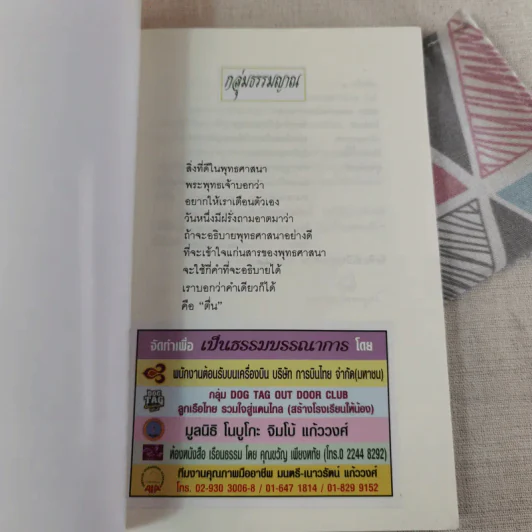 กลุ่มธรรมญาณ
สิ่งที่ดีในพุทธศาสนา
พระพุทธเจ้าบอกว่า
อยากให้เราเตือนตัวเอง
วันหนึ่งมีฝรั่งถามอาตมาว่า
ถ้าจะอธิบายพุทธศาสนาอย่างดี
ที่จะเข้าใจแก่นสารของพุทธศาสนา
จะใช้กี่คำที่จะอธิบายได้
เราบอกว่าคำเดียวก็ได้
คือ “ตื่น”
จัดทำเพื่อ เป็นธรรมบรรณาการ โดย
พนักงานต้อนรับบนเครื่องบิน บริษัท การบินไทย จำกัด(มหาชน)
กลุ่ม DOG TAG OUT DOOR CLUB
ลูกเรือไทย รวมใจสู่แดนไกล (สร้างโรงเรียนให้น้อง)
มูลนิธิ โนบูโกะ จิมโบ้ แก้ววงศ์
ห้องหนังสือ เรือนธรรม โดย คุณขวัญ เพียงหทัย (โทร.0 2244 8292)
ทีมงานคุณภาพมืออาชีพ มนตรี-เนาวรัตน์ แก้ววงศ์
โทร. 02-930 3006-8 / 01-647 1814 / 01-829 9152